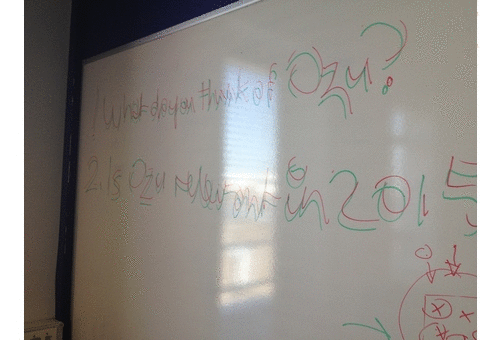 1 What do you think of Ozu?
2. Is Ozu relevant in 2015